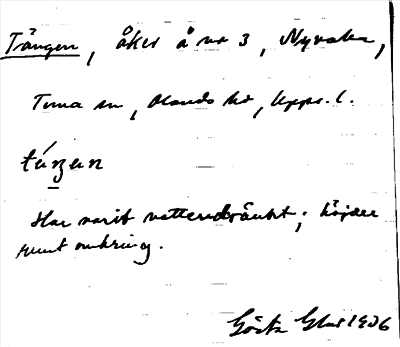 Tången, åker å nr 3, Nyvalla,
Tuna sn, Olands hd, Upps. l.
táŋen
Har varit vattendränkt; höjder
runt omkring.
Gösta 1906